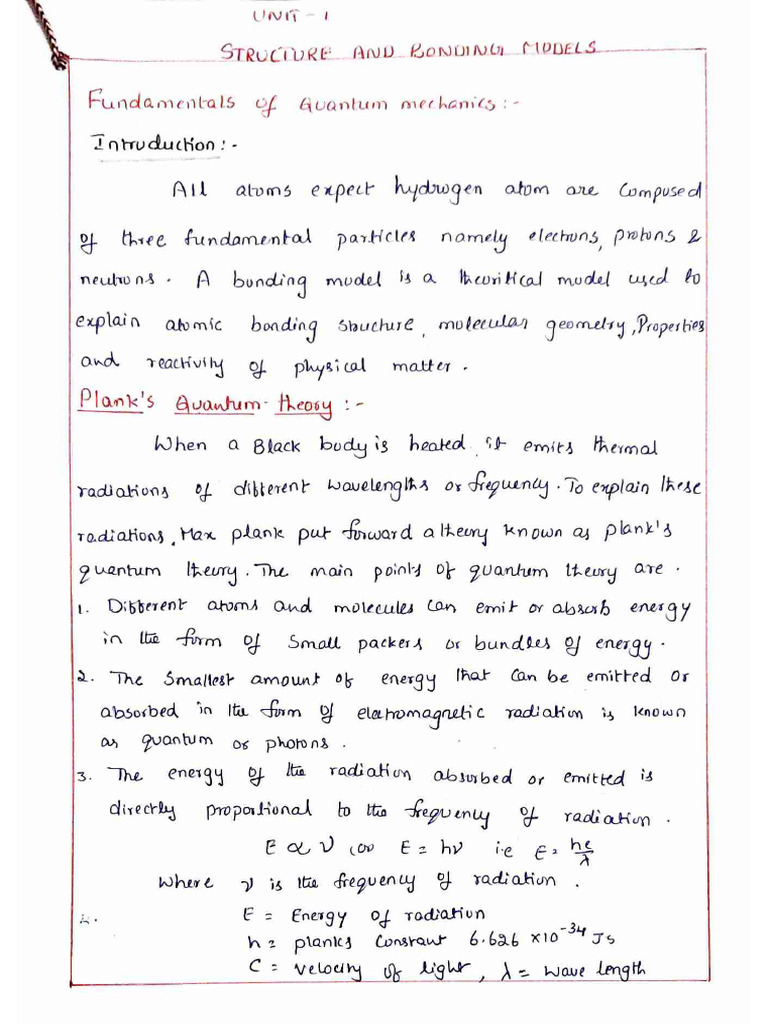 UNIT - 1
STRUCTURE AND BONDING MODELS
Fundamentals of Quantum mechanics :-
Introduction :-
All atoms expect hydrogen atom are composed
of three fundamental particles namely electrons, protons &
neutrons. A bonding model is a theoritical model used to
explain atomic bonding structure, molecular geometry, Properties
and reactivity of physical matter.
Plank's Quantum theory :-
When a Black body is heated, it emits thermal
radiations of different wavelengths or frequency. To explain these
radiations, Max plank put forward a theory known as plank's
quantum theory. The main points of quantum theory are.
1. Different atoms and molecules can emit or absorb energy
in the form of small packers or bundles of energy.
2. The smallest amount of energy that can be emitted or
absorbed in the form of electromagnetic radiation is known
as quantum or photons.
3. The energy of the radiation absorbed or emitted is
directly proportional to the frequency of radiation.
E ∝ ν (or) E = hν i.e E = hc/λ
Where ν is the frequency of radiation.
E = Energy of radiation
h = planks constant 6.626 ×10⁻³⁴ Js
C = velocity of light, λ = wave length